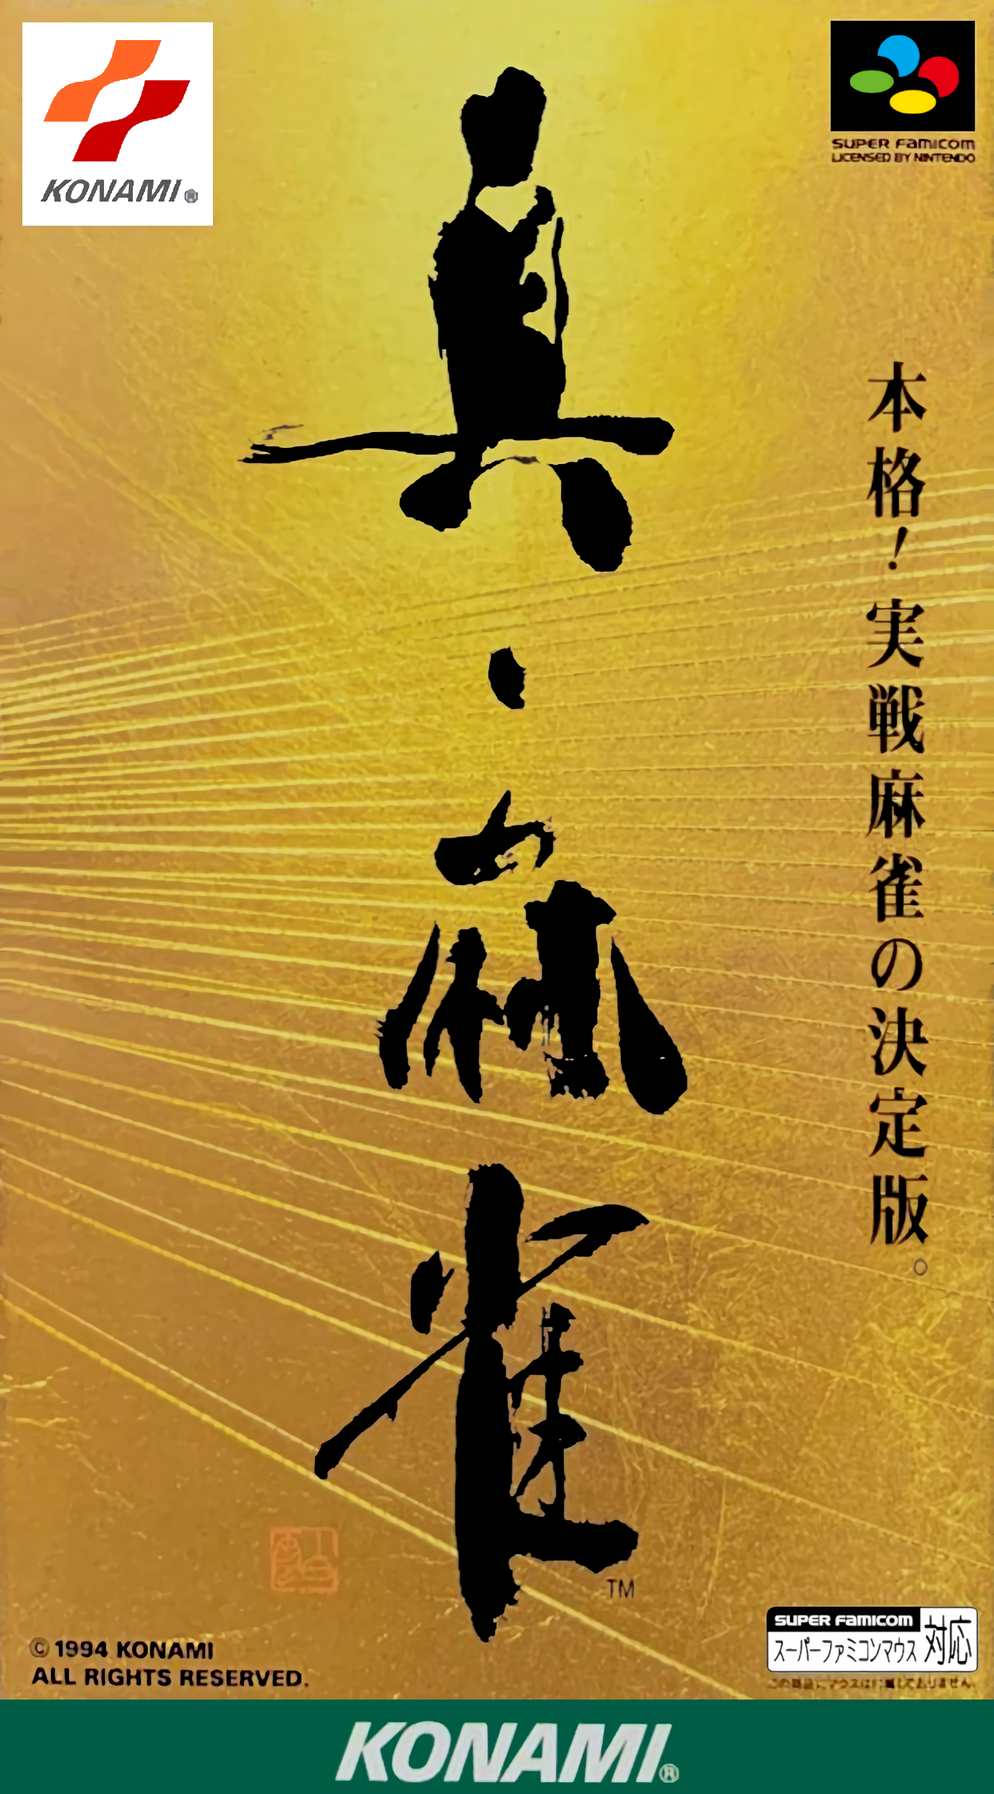 KONAMI®
SUPER FAMICOM
LICENSED BY NINTENDO
真・麻雀
TM
本格!実戦麻雀の決定版。
© 1994 KONAMI
ALL RIGHTS RESERVED.
SUPER FAMICOM
スーパーファミコンマウス
対応
この商品にマウスは付属しておりません。
KONAMI®